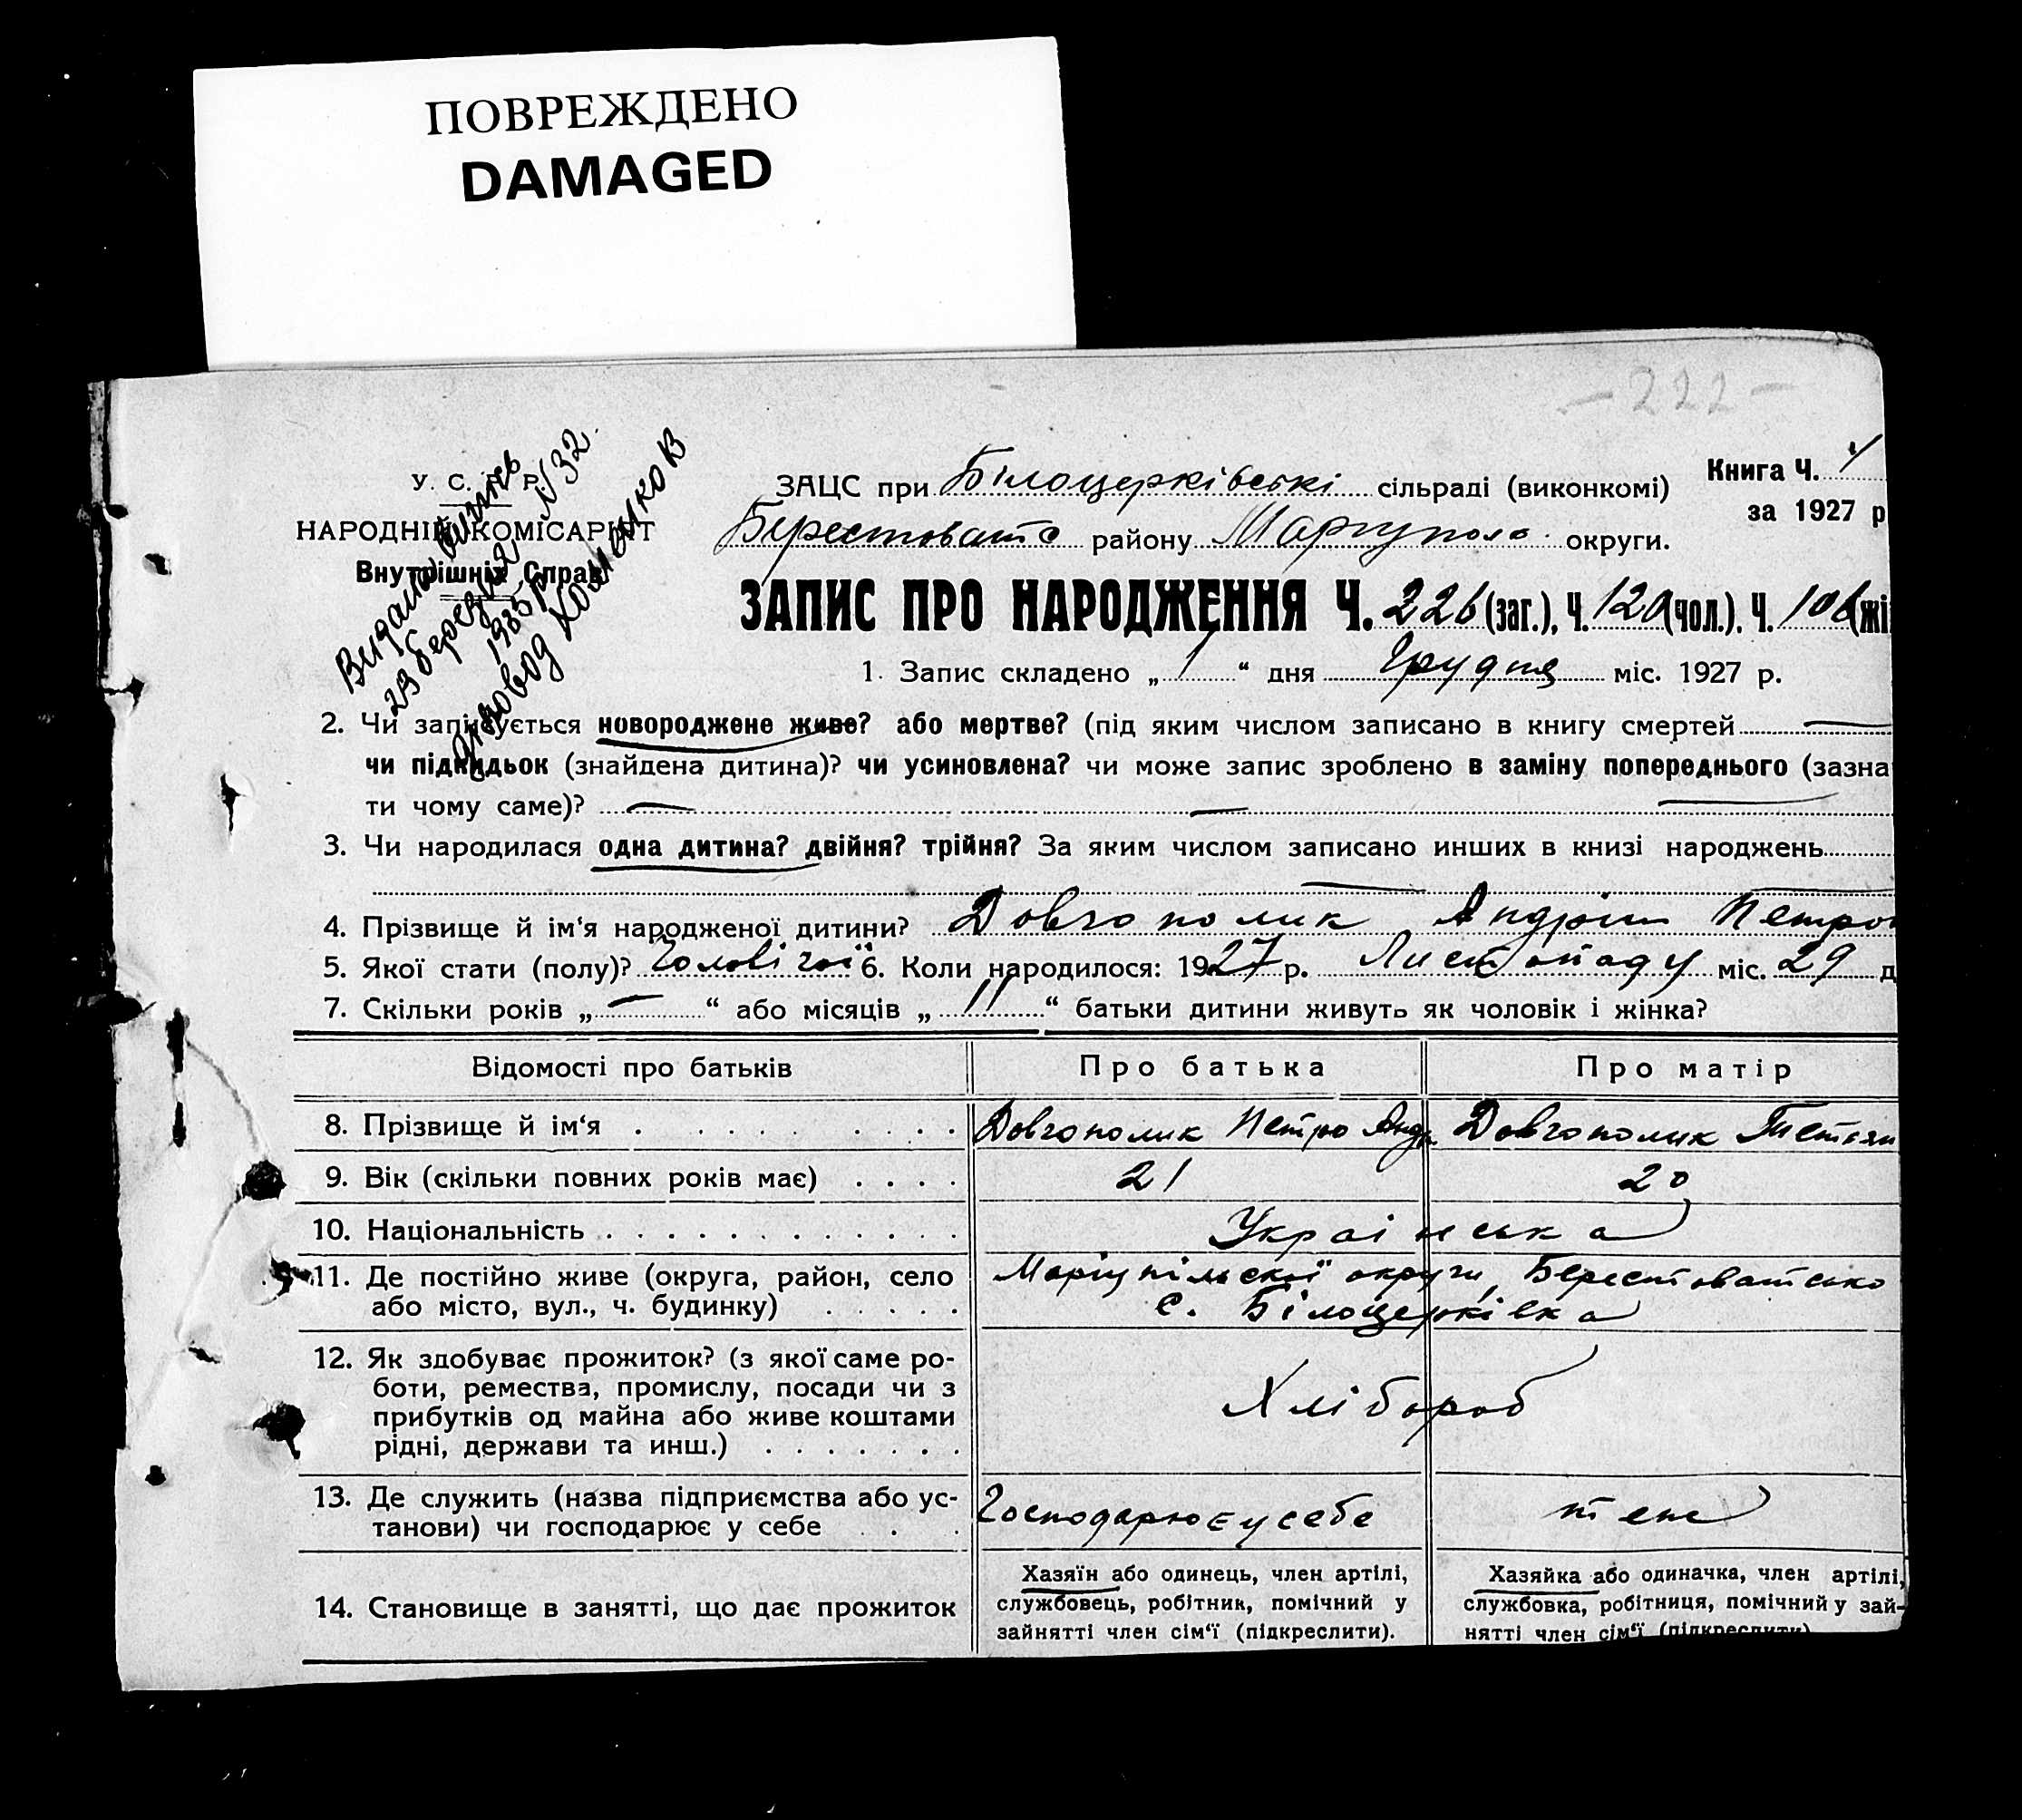 ПОВРЕЖДЕНО
DAMAGED
—222—
У. С. Р. Р.
НАРОДНІЙ КОМІСАРІЯТ
Внутрішніх Справ
29 березня N 32.
1935 р.
ЗАЦС при Білоцерківські сільраді (виконкомі)
Книга Ч. 1
за 1927 р
Берестовате району Маріупол. округи.
ЗАПИС ПРО НАРОДЖЕННЯ Ч. 226 (заг.), Ч. 120 (чол.). Ч. 106 (жі
1. Запис складено „ 1 “ дня Грудня міс. 1927 р.
2. Чи записується новороджене живе? або мертве? (під яким числом записано в книгу смертей —
чи підкидьок (знайдена дитина)? чи усиновлена? чи може запис зроблено в заміну попереднього (зазна
ти чому саме)? — — —
3. Чи народилася одна дитина? двійня? трійня? За яким числом записано инших в книзі народжень
— —
4. Прізвище й ім‘я народженої дитини? Довгополик Андрій Петро
5. Якої стати (полу)? Чоловічої 6. Коли народилося: 1927 р. Листопаду міс. 29 д
7. Скільки років „ — “ або місяців „ 11 “ батьки дитини живуть як чоловік і жінка?
Відомості про батьків Про батька Про матір
8. Прізвище й ім‘я Довгополик Петро Андр. Довгополик Тетян
9. Вік (скільки повних років має) 21 20
10. Національність Українська
11. Де постійно живе (округа, район, село Маріупільскої округи, Берестоватсько
або місто, вул., ч. будинку) с. Білоцерківка
12. Як здобуває прожиток? (з якої саме ро-
боти, ремества, промислу, посади чи з
прибутків од майна або живе коштами
рідні, держави та инш.)
Хлібороб
13. Де служить (назва підприємства або ус-
танови) чи господарює у себе
Господарює у себе теж
14. Становище в занятті, що дає прожиток
Хазяїн або одинець, член артілі,
службовець, робітник, помічний у
зайнятті член сім‘ї (підкреслити).
Хазяйка або одиначка, член артілі,
службовка, робітниця, помічний у зай-
нятті член сім‘ї (підкреслити)